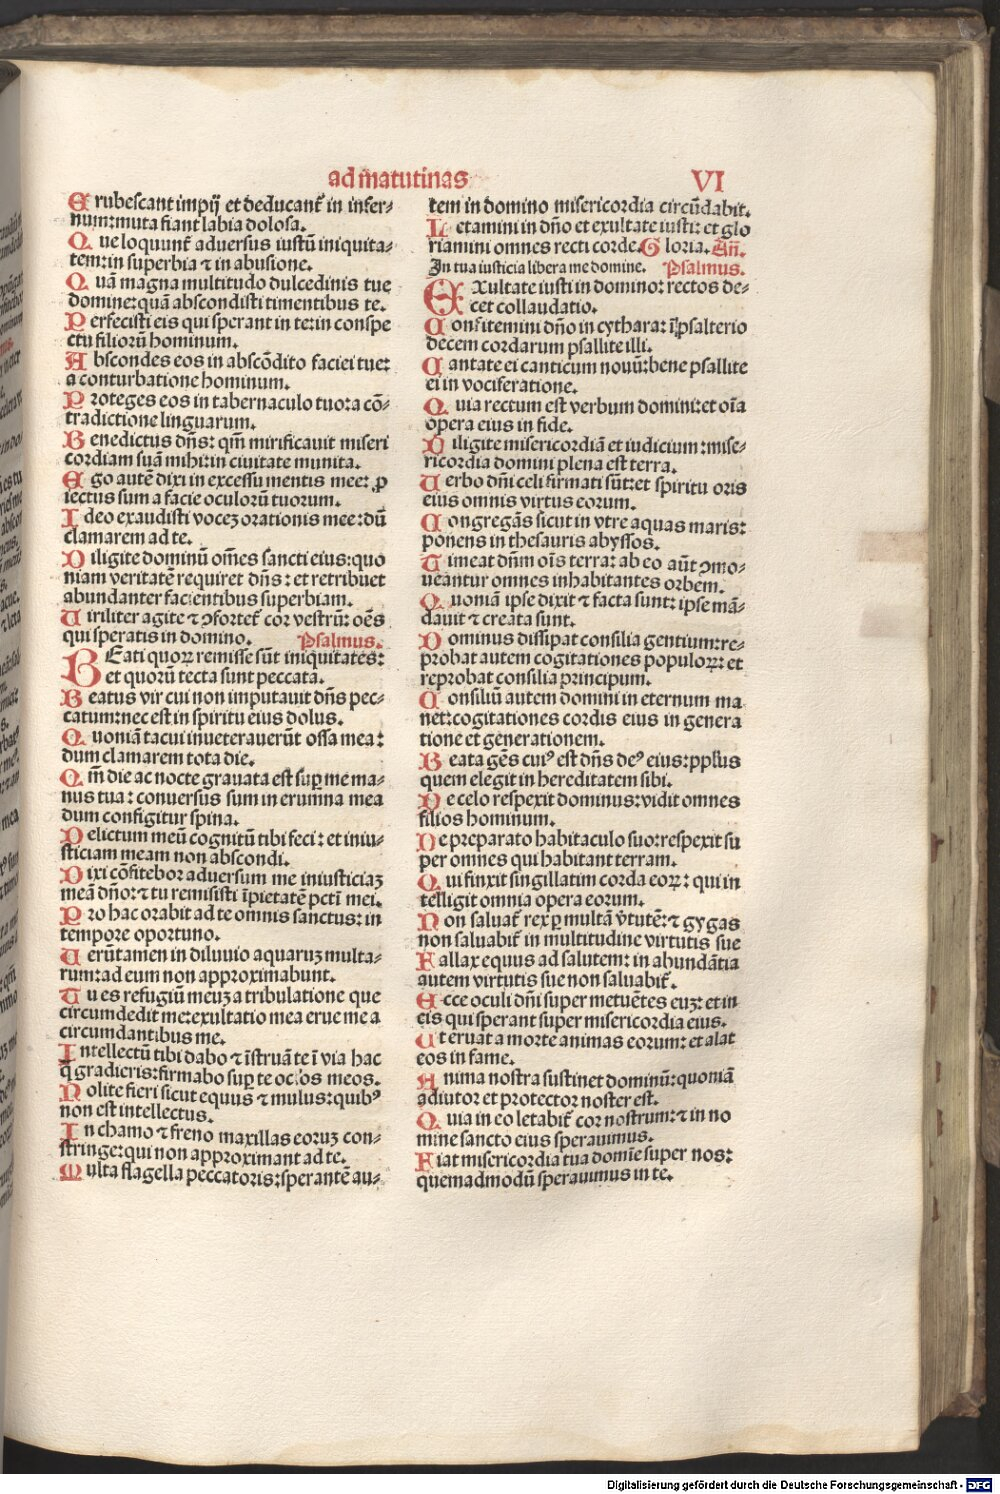 ad m̄atutinas
VI
Erubescant impij et deducant᷑ in infer-
num:muta fiant labia dolosa.
Que loquunt᷑ aduersus iustū iniquita-
tem:in superbia ⁊ in abusione.
Quā magna multitudo dulcedinis tue
domine:quā abscondisti timentibus te.
Perfecisti eis qui sperant in te:in conspe
ctu filiorū hominum.
Abscondes eos in abscōdito faciei tue:
a conturbatione hominum.
Proteges eos in tabernaculo tuo:a cō-
tradictione linguarum.
Benedictus dn̄s: qm̄ mirificauit miseri
cordiam suā mihi:in ciuitate munita.
Ego autē dixi in excessu mentis mee: ꝓ
iectus sum a facie oculorū tuorum.
Ideo exaudisti vocez orationis mee:dū
clamarem ad te.
Diligite dominū om̄es sancti eius:quo
niam veritatē requiret dn̄s: et retribuet
abundanter facientibus superbiam.
Uiriliter agite ⁊ ꝯfortet᷑ cor vestrū: oēs
qui speratis in domino. Psalmus.
BEati quoꝝ remisse sūt iniquitates:
et quorū tecta sunt peccata.
Beatus vir cui non imputauit dn̄s pec-
catum:nec est in spiritu eius dolus.
Quoniā tacui inueterauerūt ossa mea:
dum clamarem tota die.
Qm̄ die ac nocte grauata est suꝑ me ma-
nus tua: conuersus sum in erumna mea
dum configitur spina.
Delictum meū cognitū tibi feci: et iniu-
sticiam meam non abscondi.
Dixi cōfitebor aduersum me iniusticiaz
meā dn̄o:⁊ tu remisisti īpietatē pctī mei.
Pro hac orabit ad te omnis sanctus: in
tempore oportuno.
Uerūtamen in diluuio aquaruz multa-
rum:ad eum non approximabunt.
Tu es refugiū meuz a tribulatione que
circumdedit me:exultatio mea erue me a
circumdantibus me.
Intellectū tibi dabo ⁊ īstruā te ī via hac
q̄ gradieris:firmabo suꝑ te oculos meos.
Nolite fieri sicut equus ⁊ mulus:quibꝰ
non est intellectus.
In chamo ⁊ freno maxillas eoruz con-
stringe:qui non approximant ad te.
Multa flagella peccatoris:sperantē au-
tem in domino misericordia circūdabit.
Letamini in dn̄o et exultate iusti: et glo
riamini omnes recti corde. Gloria. An̄.
In tua iusticia libera me domine. Psalmus.
EXultate iusti in domino: rectos de-
cet collaudatio.
Confitemini dn̄o in cythara: ī psalterio
decem cordarum psallite illi.
Cantate ei canticum nouū:bene psallite
ei in vociferatione.
Quia rectum est verbum domini:et oīa
opera eius in fide.
Diligite misericordiā et iudicium:mise-
ricordia domini plena est terra.
Uerbo dn̄i celi firmati sūt:et spiritu oris
eius omnis virtus eorum.
Congregās sicut in vtre aquas maris:
ponens in thesauris abyssos.
Timeat dn̄m oīs terra: ab eo aūt ꝯmo-
ueantur omnes inhabitantes orbem.
Quoniā ipse dixit ⁊ facta sunt: ipse mā-
dauit ⁊ creata sunt.
Dominus dissipat consilia gentium:re-
probat autem cogitationes populoꝝ: et
reprobat consilia principum.
Consiliū autem domini in eternum ma
net:cogitationes cordis eius in genera
tione et generationem.
Beata gēs cuiꝰ est dn̄s deꝰ eius:ppl̄us
quem elegit in hereditatem sibi.
De celo respexit dominus:vidit omnes
filios hominum.
De preparato habitaculo suo:respexit su
per omnes qui habitant terram.
Qui finxit singillatim corda eoꝝ: qui in
telligit omnia opera eorum.
Non saluat᷑ rex ꝑ multā v̄tutē:⁊ gygas
non saluabit᷑ in multitudine virtutis sue
Fallax equus ad salutem: in abundātia
autem virtutis sue non saluabit᷑.
Ecce oculi dn̄i super metuētes euz: et in
eis qui sperant super misericordia eius.
Ut eruat a morte animas eorum: et alat
eos in fame.
Anima nostra sustinet dominū:quoniā
adiutor et protector noster est.
Quia in eo letabit᷑ cor nostrum:⁊ in no
mine sancto eius sperauimus.
Fiat misericordia tua domīe super nos:
quemadmodū sperauimus in te.
Digitalisierung gefördert durch die Deutsche Forschungsgemeinschaft - DFG